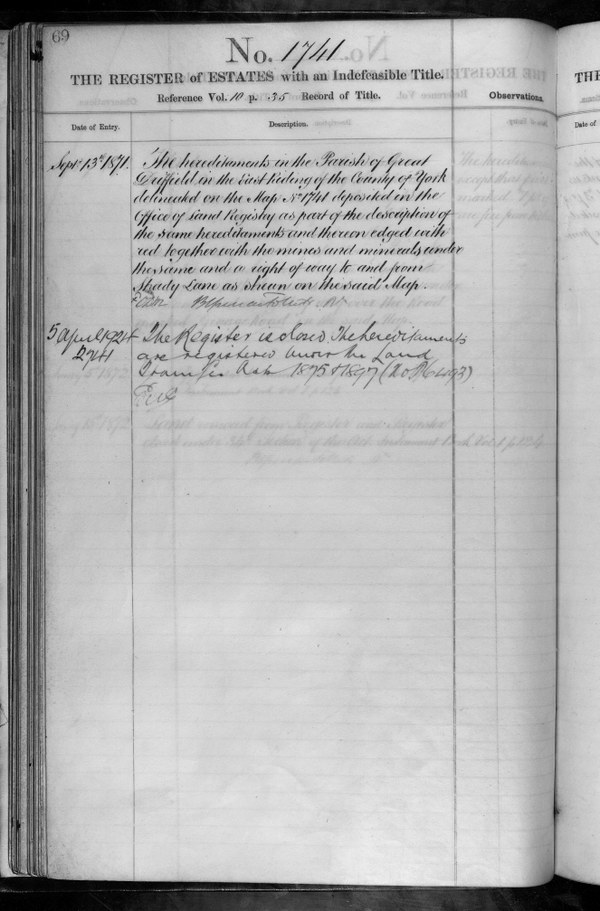 69
No. 1741
THE REGISTER of ESTATES with an Indefeasible Title.
Reference Vol. 10 p. 35 Record of Title.
Observations.
Date of Entry.
Description.
Septr 13th 1871.
The hereditaments in the Parish of Great
Driffield in the East Riding of the County of York
delineated on the Map No 1741 deposited in the
Office of Land Registry as part of the description of
the same hereditaments and thereon edged with
red together with the mines and minerals under
the same and a right of way to and from
Shady Lane as shewn on the said Map.
5 April 1924
2741
The Register is closed. The hereditaments
are registered under the Land
Transfer Acts 1875 & 1897 (No
THE
Date of